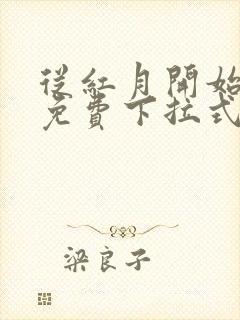 從紅月開始
免費下拉式
梁良子